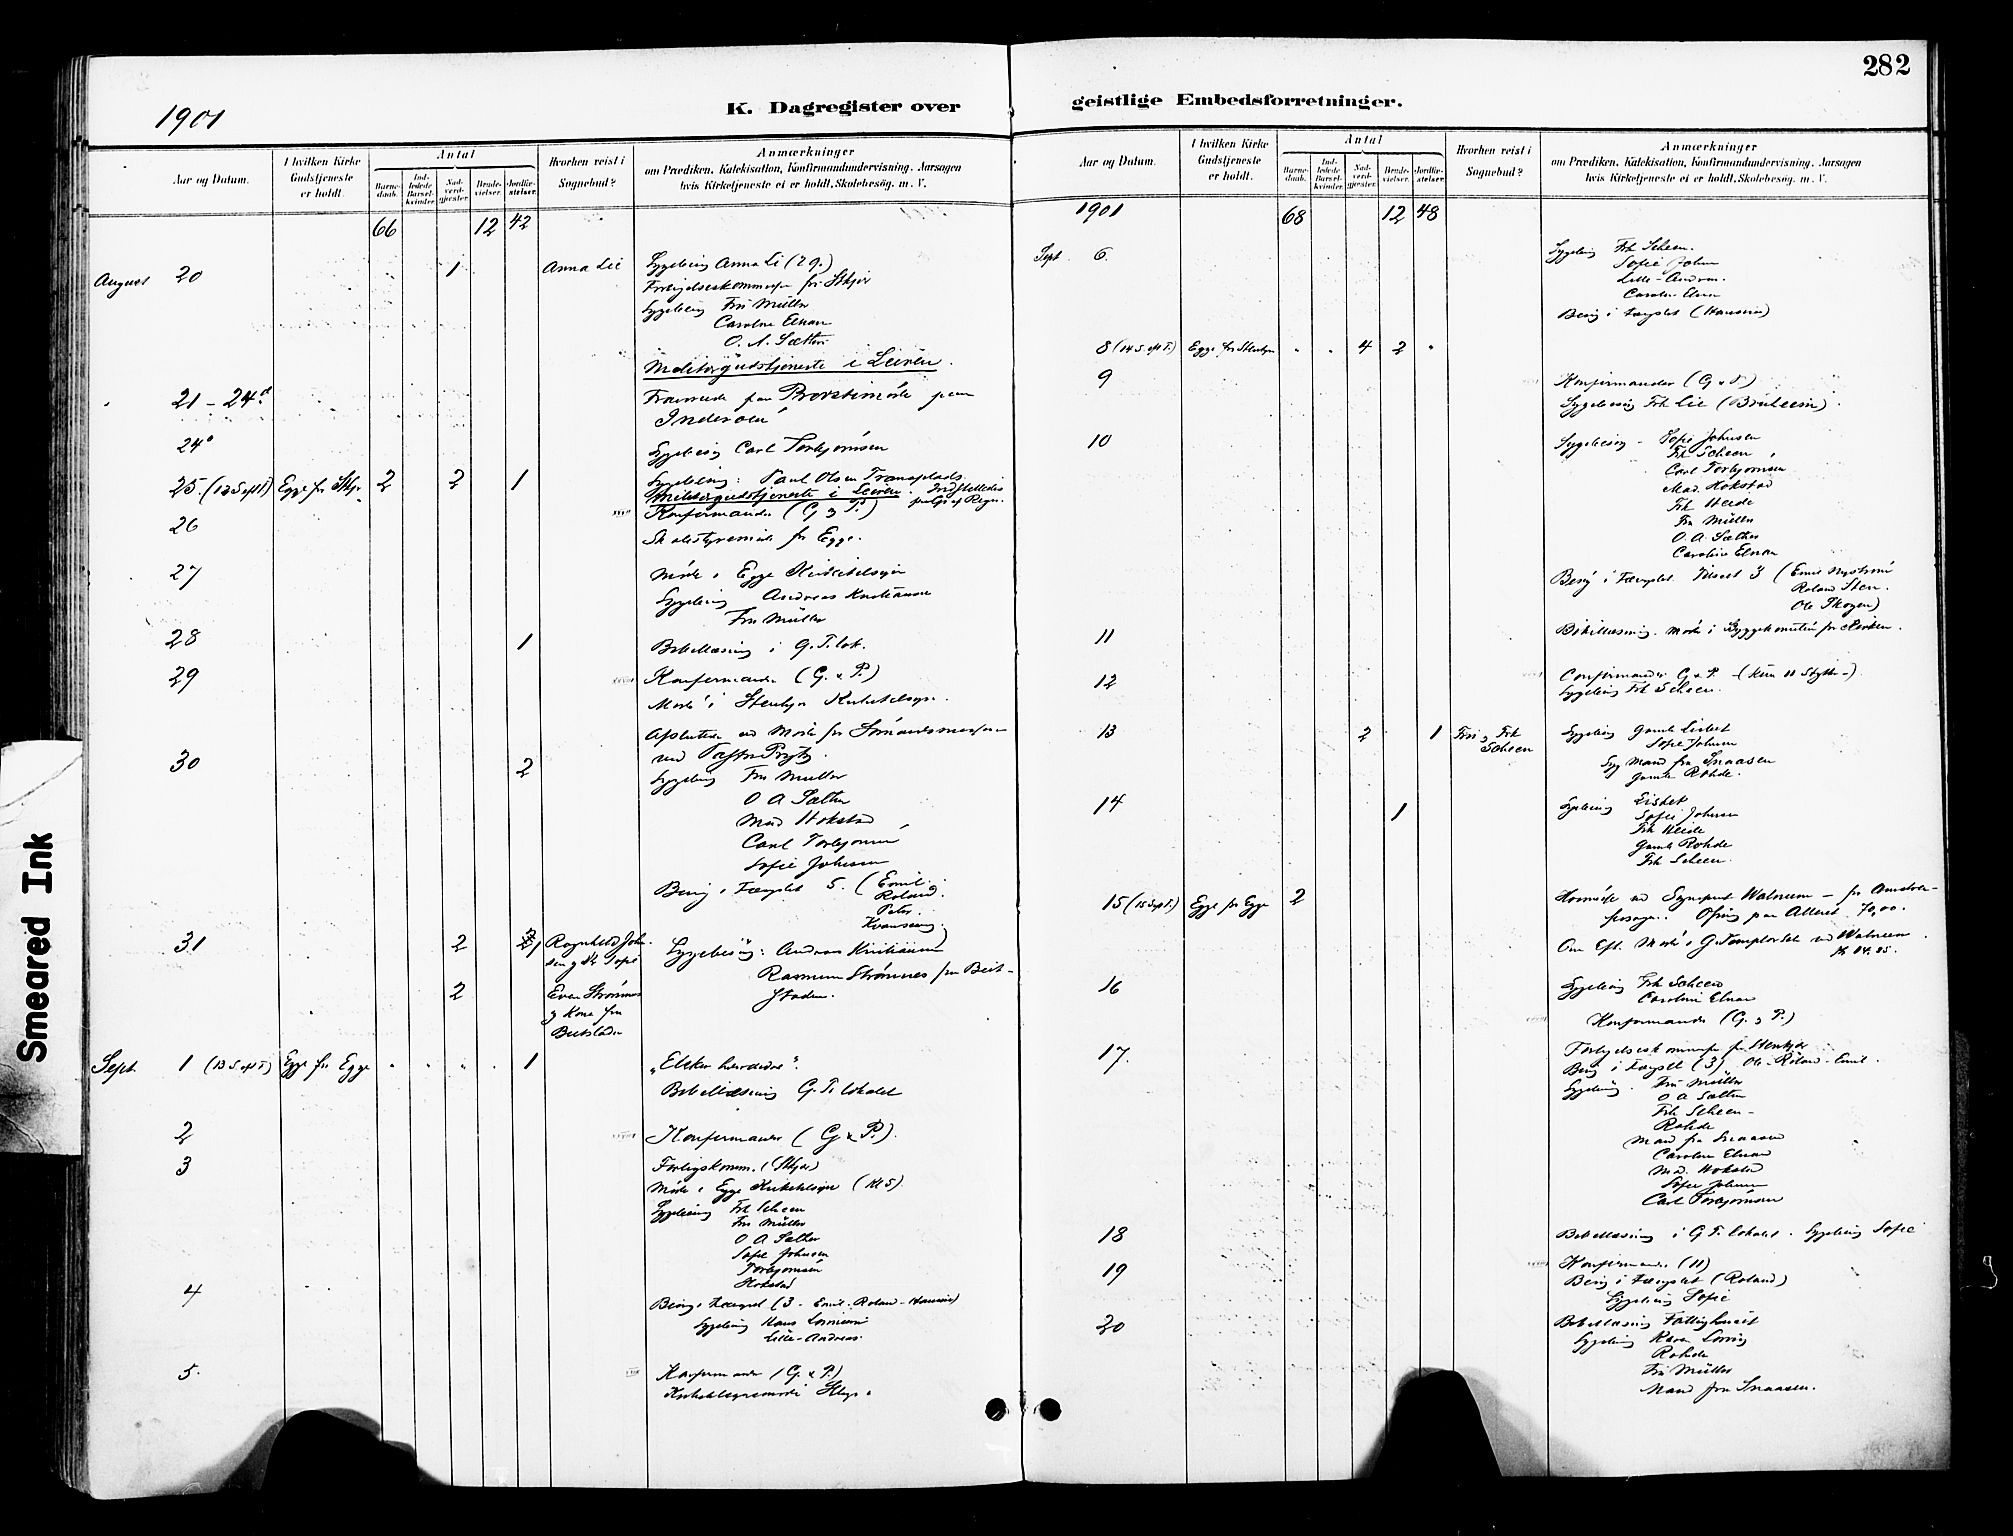 1901
K. Dagregister over
Aar og Datum.
I hvilken Kirke Gudstjeneste er holdt.
Antal
Barne-daab.
Ind-ledede Barsel-kvinder.
Nad-verd-gjester.
Brude-vielser.
Jordfæ-stelser.
Hvorhen reist i Sognebud?
Anmærkninger
om Prædiken, Katekisation, Konfirmandundervisning, Aarsagen
hvis Kirketjeneste ei er holdt, Skolebesøg, m. V.
66 12 42
August 20 1 Anna Lie Sygebesøg Anna Li (29.)
Sygebesøg Fru Müller
Caroline Elnan
O. A. Sæther
Militærgudstjeneste i Leiren.
21 - 24de Fraværende paa Provstimöde paa
Inderöen
24de Sygebesög Carl Torbjörnsen
25. (12 S. eft T.) Egge for Stkjr 2 2 1 Sygebesög: Paul Olsen
Militærgudstjeneste i Leiren. Indstilledes
paa Gr. af Regn.
26 Konfirmander (G og P.)
Skolestyremöde for Egge.
27 Möde i Egge Kirketilsyn
Sygebesög Andreas Kristiansen
Fru Müller
28 1 Bibellæsning i G. T. lok.
29 Konfirmander (G. & P.)
Möde i Stenkjær Kirketilsyn.
Afsluttende Möde for Sömandsmissionen
30 2 Sygebesög Fru Müller
O A Sæther
Mad Hokstad
Carl Torbjörnsen
Sofie Johnsen
Besög i Fængslet 5. (Emil.
Roland.
Peter.
31 2 1 Ragnhild John-
sen og Fr Sofie Sygebesög: Andreas Kristiansen
Rasmus Strömnes fra Beit-
staden.
2 Even Strömnes
og Kone fra
Beitstaden
Sept. 1 (13 S. eft T.) Egge for Egge " " " " 1 "Elsker hverandre".
Bibellæsning G. T. lokalet
2 Konfirmander (G & P.).
3 Forligskomm. (Stkjær)
Möde i Egge Kirketilsyn (Kl 5).
Sygebesög Frk Scheen
Fru Müller
O A Sæther
Sofie Johnsen
Torbjörnsen
Hokstad
4 Besög i Fængsl (3 - Emil - Roland - Hansen)
Sygebesög Hans
Lille-Andreas
5. Konfirmander (G & P.)
Kirketilsynsmöde Stkjr.
282
geistlige Embedsforretninger.
Aar og Datum.
I hvilken Kirke Gudstjeneste er holdt.
Antal
Barne-daab.
Ind-ledede Barsel-kvinder.
Nad-verd-gjester.
Brude-vielser.
Jordfæ-stelser.
Hvorhen reist i Sognebud?
Anmærkninger
om Prædiken, Katekisation, Konfirmandundervisning, Aarsagen
hvis Kirketjeneste ei er holdt, Skolebesøg, m. V.
1901 68 12 48
Sept. 6. Sygebesög Frk Scheen.
Sofie Johnsen
Lille-Andreas.
Caroline Elnan
Besög i Fængslet (Hansen)
8 (14 S. eft T.) Egge for Stenkjær " " 4 2 "
9 Konfirmander (G & P.)
Sygebesög Frk Lie
10 Sygebesög - Sofie Johnsen
Frk Scheen
Carl Torbjörnsen
Mad. Hokstad
Frk Heide
Fru Müller
O. A. Sæther
Caroline Elnan
Besög i Fængslet. Tilsat 3 (Emil Nyström
Roland Sten.
Ole Skogen)
11 Bibellæsning. Möde i Byggekomiteen for Kirken.
12 Confirmander G & P.
Sygebesög Frk Scheen.
13 2 1 Fru og Frk
Scheen Sygebesög Gamle Lisbet
Sofie Johnsen
Syg Mand fra Snaasen
Gamle Rohde.
14 1 Sygebesög Lisbet
Sofie Johnsen
Frk Heide
Gamle Rohde
Frk Scheen.
15 (15 S. eft T.) Egge for Egge 2 Höimesse ved Sognepræst Walnum -
Ofring paa Alteret. 70,00.
Om Eft. Möde i G. Templarlok ved Walnum.
16 Sygebesög Frk Scheen
Caroline Elnan
Konfirmander (G. og P.)
17. Forligelseskommission for Stenkjær
Besög i Fængslet (3) Ole - Roland - Emil.
Sygebesög. Fru Müller
O A Sæther
Frk Scheen -
Rohde
Mand fra Snaasen
Caroline Elnan
Mad. Hokstad
Sofie Johnsen
Carl Torbjörnsen
18 Bibellæsning i G T. lokalet. Sygebesög Sofie
19 Konfirmander (11)
Besög i Fængslet (Roland)
Sygebesög Sofie
20 Bibellæsning Fattighuset
Sygebesög Karen
Rohde
Fru Müller
Mand fra Snaasen.
Smeared Ink